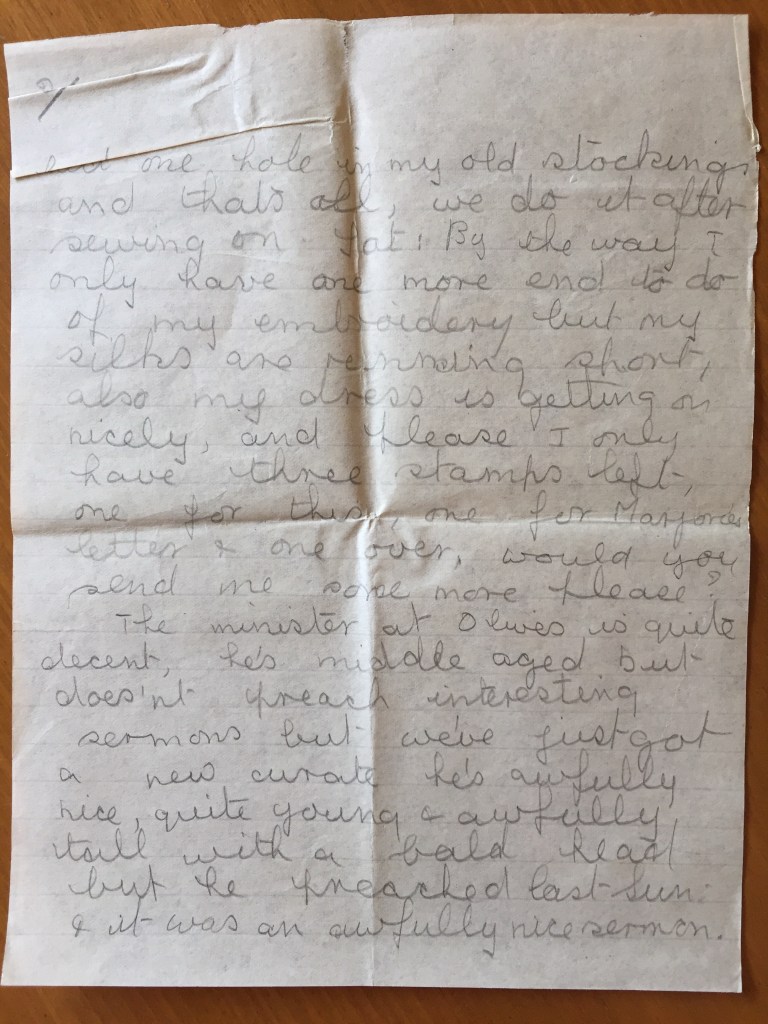 2/
one hole in my old stockings
and thats all, we do it after
sewing on Sat: By the way I
only have one more end to do
of my embroidery but my
silks are running short,
also my dress is getting on
nicely, and please I only
have three stamps left,
one for this, one for Marjories
letter & one over, would you
send me some more please?
The minister at Olives is quite
decent, he's middle aged but
does'nt preach interesting
sermons but we've just got
a new curate he's awfully
nice, quite young & awfully
tall with a bald head
but he preached last Sun:
& it was an awfully nice sermon.